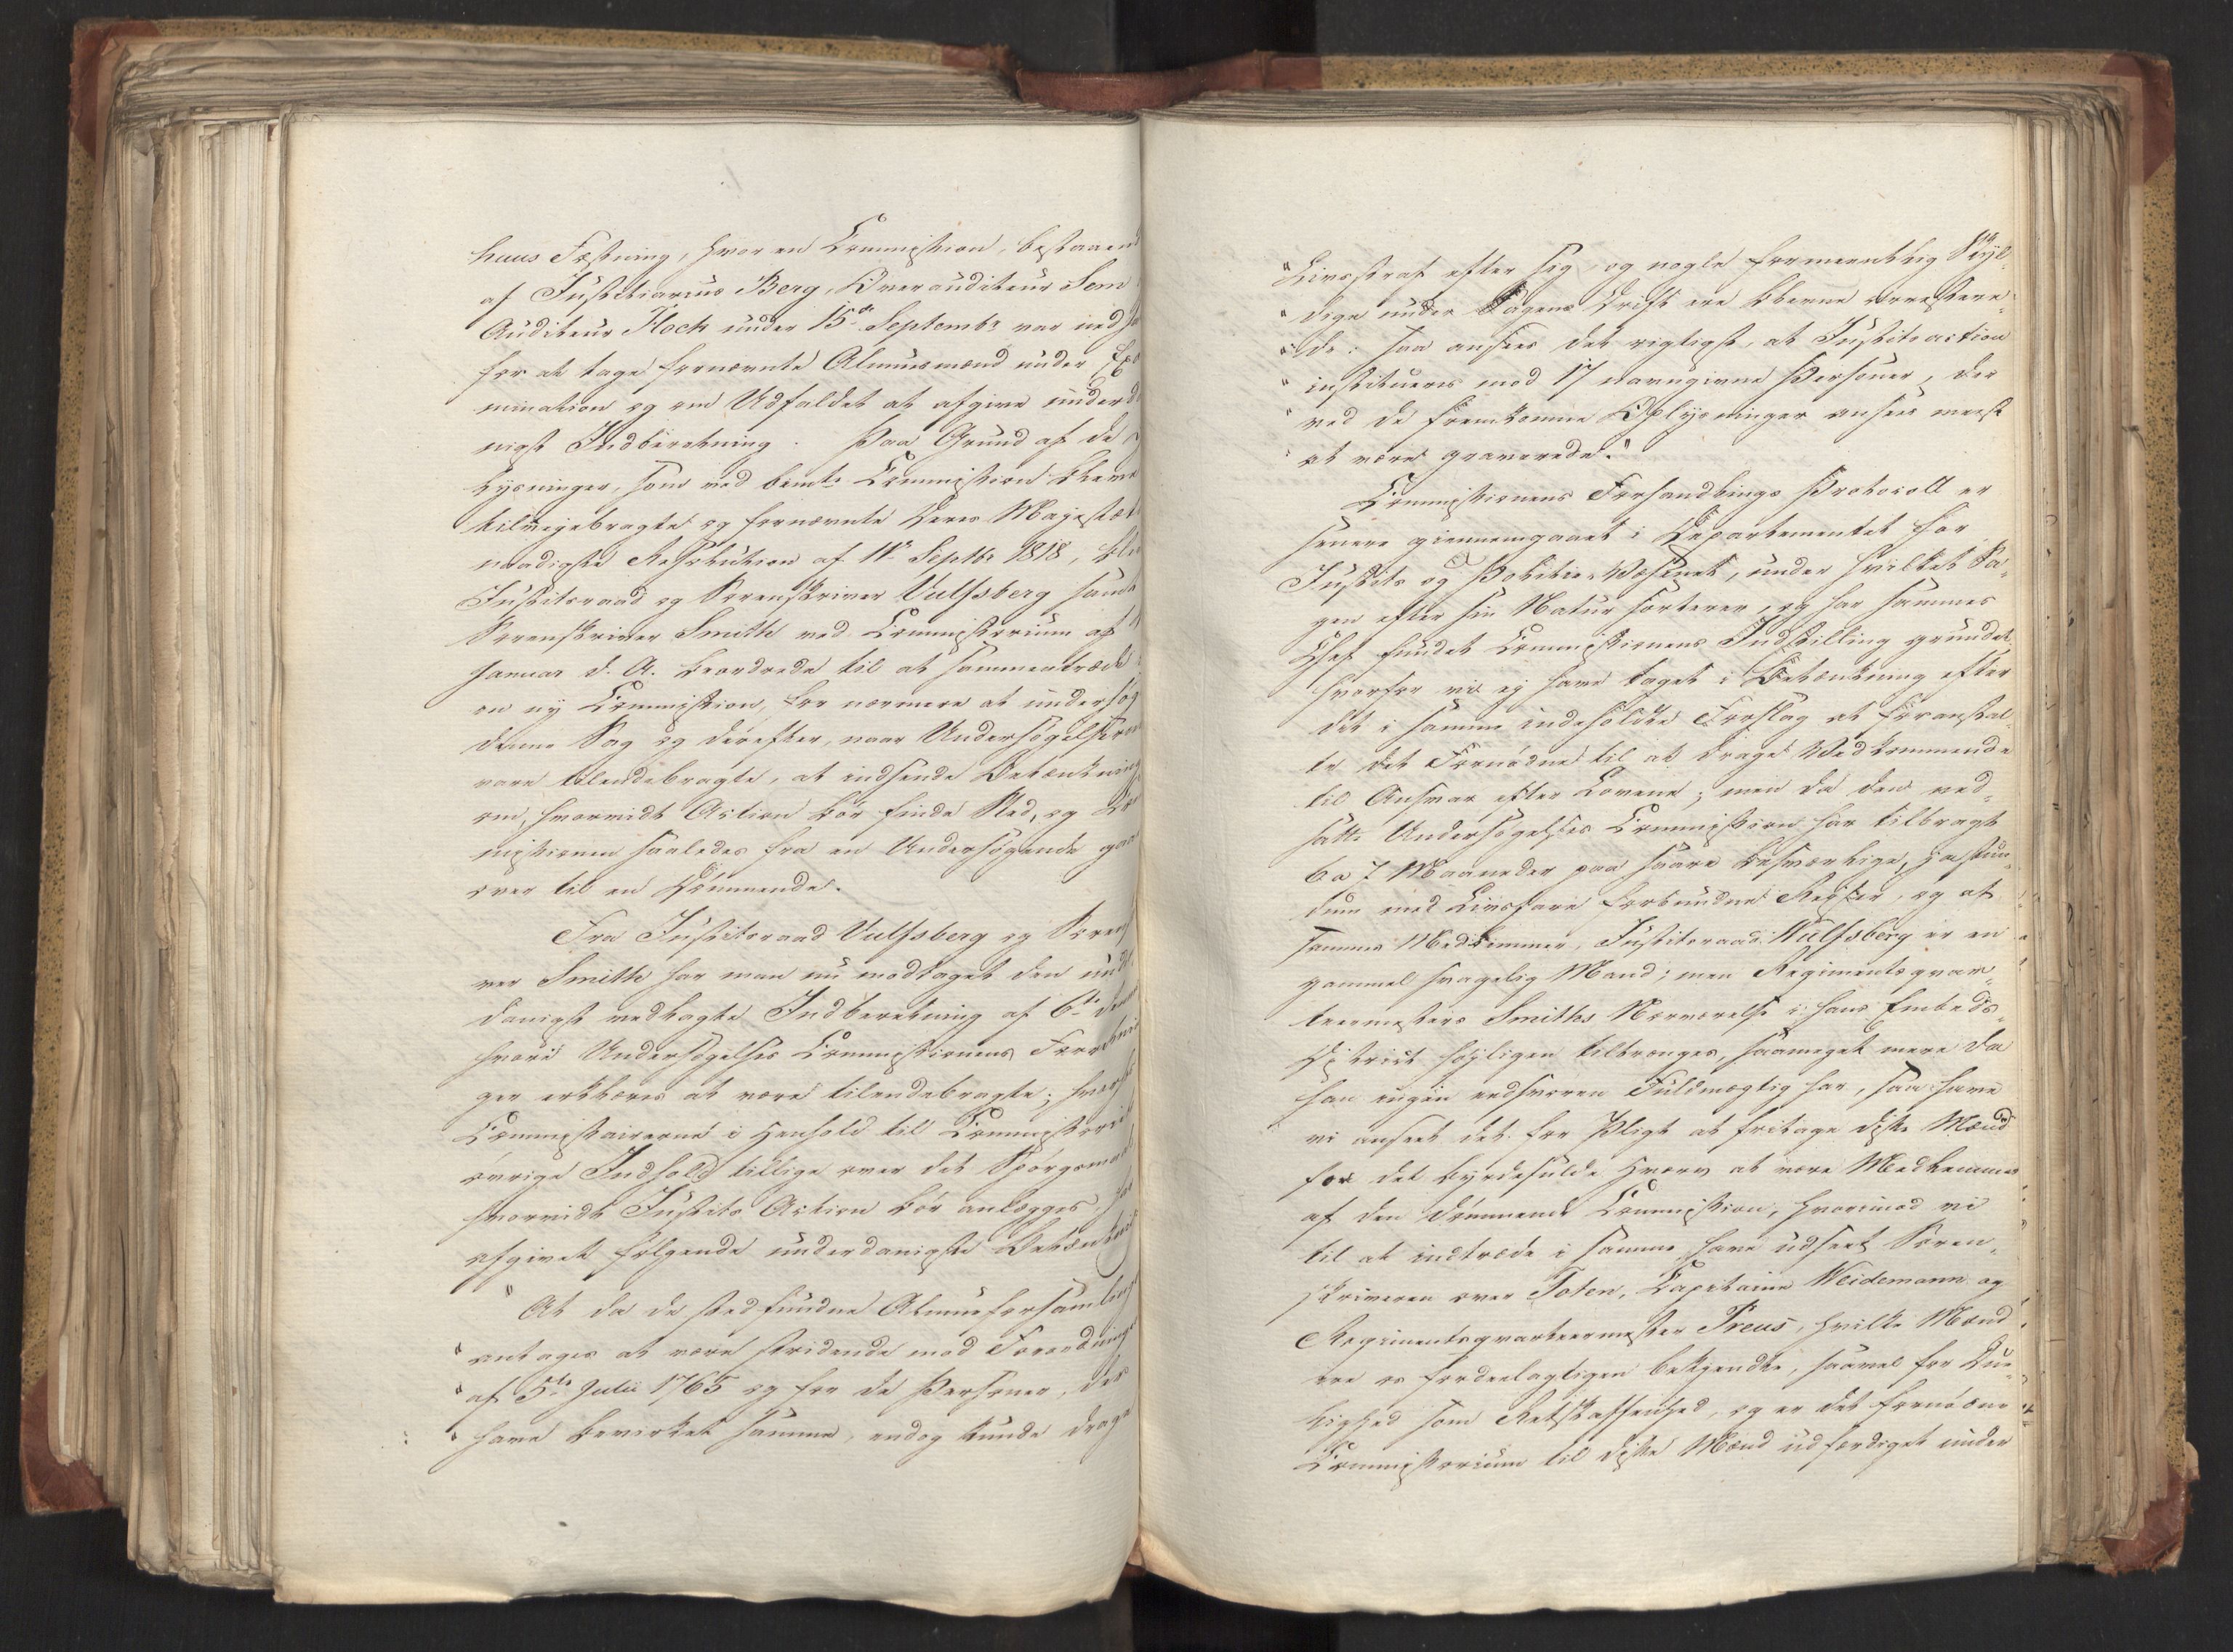 huus Fæstning, hvor en Commission, bestaaend
af Justitiarius Berg, Overauditeur Sem
Auditeur Koch under 15de Septembr var neds
for at tage fornævnte Almuesmænd under Exa
mination og om Udfaldet at afgive underd
nigst Indberetning. Paa Grund af de
lysninger, som ved bemte Commission bleve
tilveiebragte og fornævnte Deres Majestæt
naadigste Resolution af 11te Septbr 1818, ble
Justitsraad og Sorenskriver Vulfsberg samt
Sorenskriver Smith ved Commissorium af
Januar d. A. beordrede til at sammentræde
en ny Commission, for nærmere at undersøg
denne Sag og derefter, naar Undersøgelserne
vare tilendebragte, at indsende Betænkning
om, hvorvidt Action bør finde Sted, og Com
missionen saaledes fra en Undersøgende gaae
over til en Dømmende.
Fra Justitsraad Vulfsberg og Sorens
ver Smith har man nu modtaget den und
danigst vedlagte Indberetning af 6te denne
hvori Undersøgelses Commissionens Forretnin
ger erklæres at være tilendebragte; hvorhos
Commissairerne i Henhold til Commissorie
øvrige Indhold tillige over det Spørgsmaal
hvorvidt Justits Action bør anlægges, har
afgivet følgende underdanigste Betænkni
" At da de stedfundne Almueforsamling
" antages at være stridende mod Forordninge
" af 5te Julii 1765 og for de Personer, der
" have bevirket samme, endog kunde drage
" Livsstraf efter sig, og nogle formeentlig Skyl-
" dige under Sagens Drift ere blevne arrestere-
" de: saa ansees det rigtigst, at Justitsaction
" institueres mod 17 navngivne Personer, der
" ved de fremkomne Oplysninger ansees meest
" at være graverede."
Commissionens Forhandlings Protocoll er
senere giennemgaaet i Departementet for
Justits og Politie-Væsenet, under hvilket Sa-
gen efter sin Natur sorterer, og har sammes
Chef fundet Commissionens Indstilling grundet,
hvorfor vi ej have taget i Betænkning efter
det i samme indeholdte Forslag at foranstal-
te det Fornødne til at drage Vedkommende
til Ansvar efter Lovene; men da den ned-
satte Undersøgelses Commission har tilbragt
6 a 7 Maaneder paa saare besværlige, ja stun-
dum med Livsfare forbundne Rejser, og af
samme Medlemmer, Justitsraad Wulfsberg er en
gammel svagelig Mand; men Regimentsqvar-
teermesters Smiths Nærværelse i hans Embeds-
District høyligen tiltrænges, saameget mere da
han ingen eedsvoren Fuldmægtig har, saa have
vi anseet det for Pligt at fritage disse Mænd
for det byrdefulde Hverv at være Medlemmer
af den dømmende Commission, hvorimod vi
til at indtræde i samme have udseet Soren-
skriveren over Toten, Capitaine Weidemann og
Regimentsqvarteermester Preus, hvilke Mænd
ere os fordeelagtigen bekjendte, saavel for Due-
lighed som Retskaffenhed, og er det fornødne
Commissorium til disse Mænd udfærdiget under